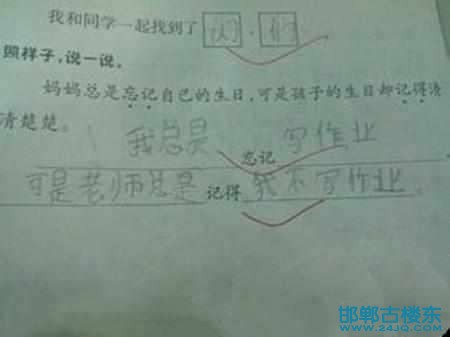 我和同学一起找到了 们 、 们
照样子,说一说。
妈妈总是忘记自己的生日,可是孩子的生日却记得清
清楚楚。
我总是 忘记 写作业
可是老师总是 记得 我不写作业 。
邯郸古楼东
WWW.24JQ.COM